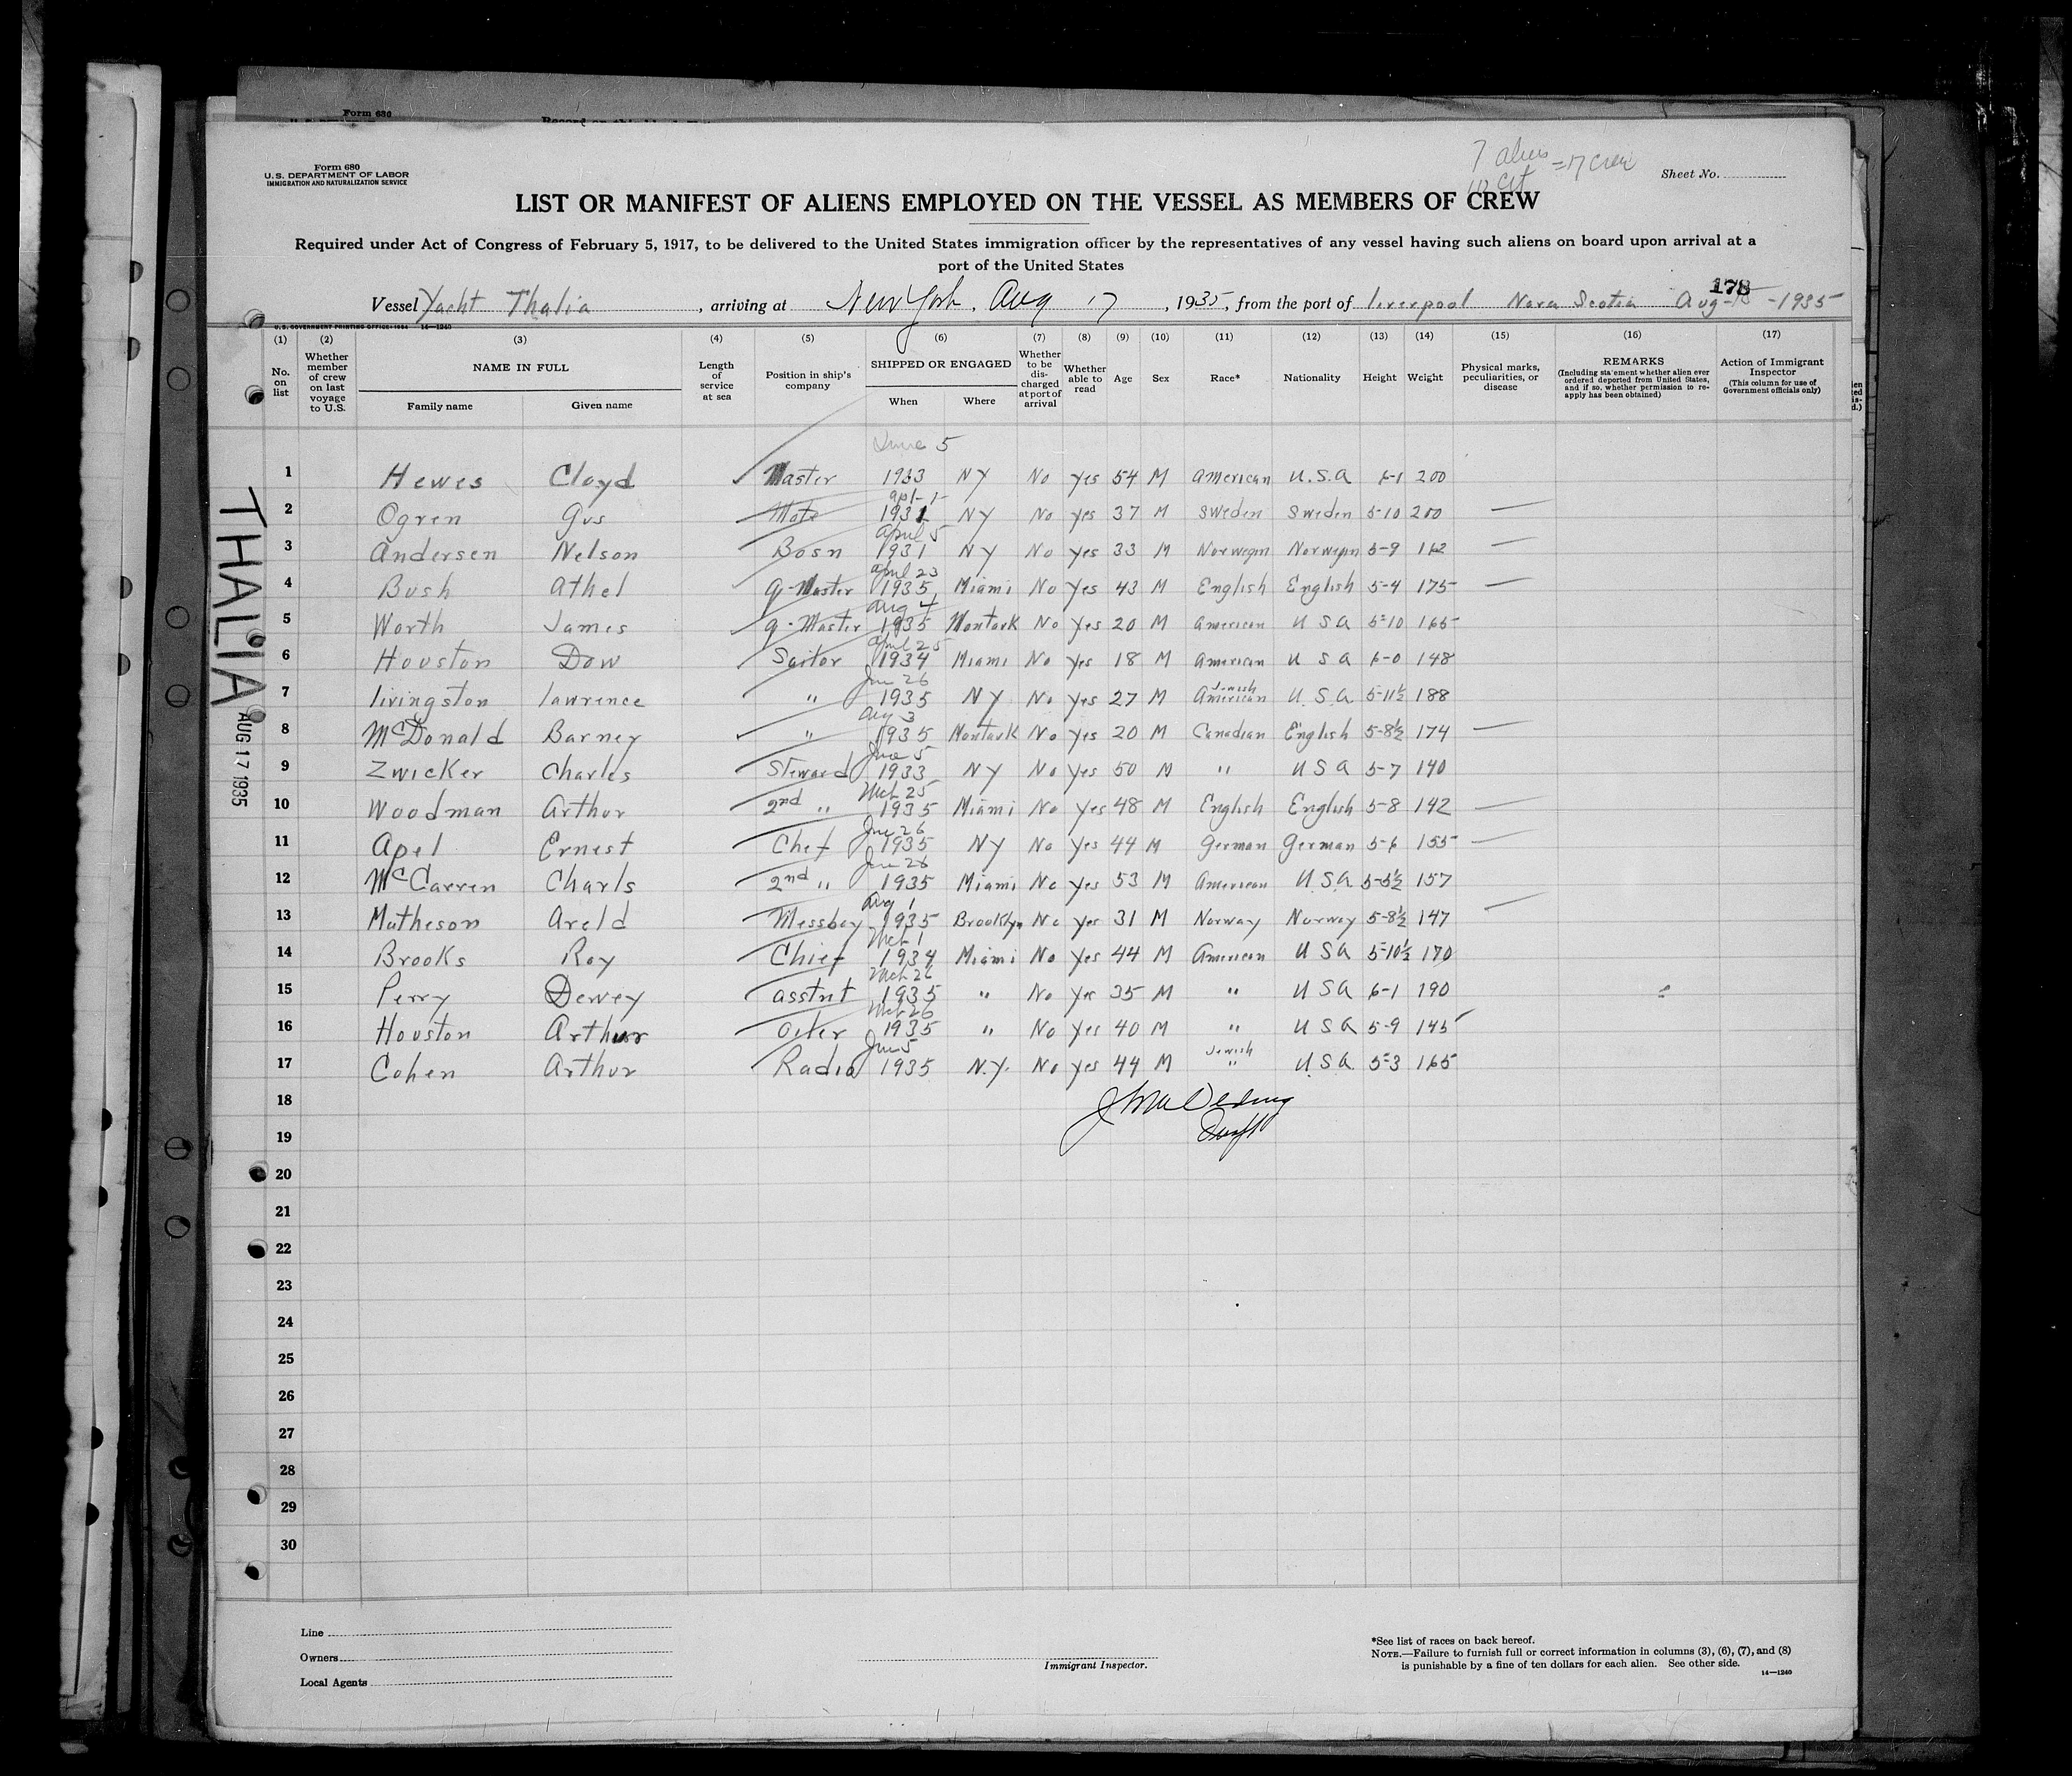 Form 630
Form 680
U.S. DEPARTMENT OF LABOR
IMMIGRATION AND NATURALIZATION SERVICE
7 aliens
10 Cit = 17 crew
Sheet No.
LIST OR MANIFEST OF ALIENS EMPLOYED ON THE VESSEL AS MEMBERS OF CREW
Required under Act of Congress of February 5, 1917, to be delivered to the United States immigration officer by the representatives of any vessel having such aliens on board upon arrival at a
port of the United States
178
Vessel Yacht Thalia, arriving at New York. Aug 17, 1935, from the port of Liverpool Nova Scotia Aug-15-1935
U.S. GOVERNMENT PRINTING OFFICE: 1934 14—1240
(1) (2) (3) (4) (5) (6) (7) (8) (9) (10) (11) (12) (13) (14) (15) (16) (17)
No. on list
Whether member of crew on last voyage to U.S.
NAME IN FULL
Family name Given name
Length of service at sea
Position in ship's company
SHIPPED OR ENGAGED
When Where
Whether to be discharged at port of arrival
Whether able to read
Age Sex Race* Nationality Height Weight
Physical marks, peculiarities, or disease
REMARKS
(Including statement whether alien ever ordered deported from United States, and if so, whether permission to re-apply has been obtained)
Action of Immigrant Inspector
(This column for use of Government officials only)
1 Hewes Cloyd Master June 5 1933 NY No yes 54 M American U.S.A 6-1 200
2 Ogren Gus Mate Apl-1- 1931 NY No yes 37 M Sweden Sweden 5-10 200 —
3 Andersen Nelson Bosn April 5 1931 NY No yes 33 M Norwegin Norwegin 5-9 162 —
4 Bush Athel Q-Master April 23 1935 Miami No yes 43 M English English 5-4 175 —
5 Worth James Q-Master Aug 4 1935 Montauk No yes 20 M American U S A 5-10 165
6 Houston Dow Sailor April 25 1934 Miami No yes 18 M American U S A 6-0 148
7 Livingston Lawrence " Jun 26 1935 NY No yes 27 M Jewish American U.S.A 5-11½ 188
8 McDonald Barney " Aug 3 1935 Montauk No yes 20 M Canadian English 5-8½ 174 —
9 Zwicker Charles Steward June 5 1933 NY No yes 50 M " U S A 5-7 140
10 Woodman Arthur 2nd " Mch 25 1935 Miami No yes 48 M English English 5-8 142 —
11 Apel Ernest Chef Jun 26 1935 NY No yes 44 M German German 5-6 155 —
12 McCarren Charls 2nd " Jun 26 1935 Miami No yes 53 M American U.S.A 5-5½ 157
13 Matheson Areld Messboy Aug 1 1935 Brooklyn No yes 31 M Norway Norway 5-8½ 147 —
14 Brooks Roy Chief Mch 1 1934 Miami No yes 44 M American U S A 5-10½ 170
15 Perry Dewey asstnt Mch 26 1935 " No yes 35 M " U S A 6-1 190
16 Houston Arthur Oiler Mch 26 1935 " No yes 40 M " U S A 5-9 145
17 Cohen Arthur Radio Jun 5 1935 N.Y. No yes 44 M Jewish " U.S.A. 5-3 165
18
19
20
21
22
23
24
25
26
27
28
29
30
THALIA AUG 17 1935
Line
Owners
Local Agents
Immigrant Inspector.
*See list of races on back hereof.
NOTE.—Failure to furnish full or correct information in columns (3), (6), (7), and (8)
is punishable by a fine of ten dollars for each alien. See other side.
14—1240